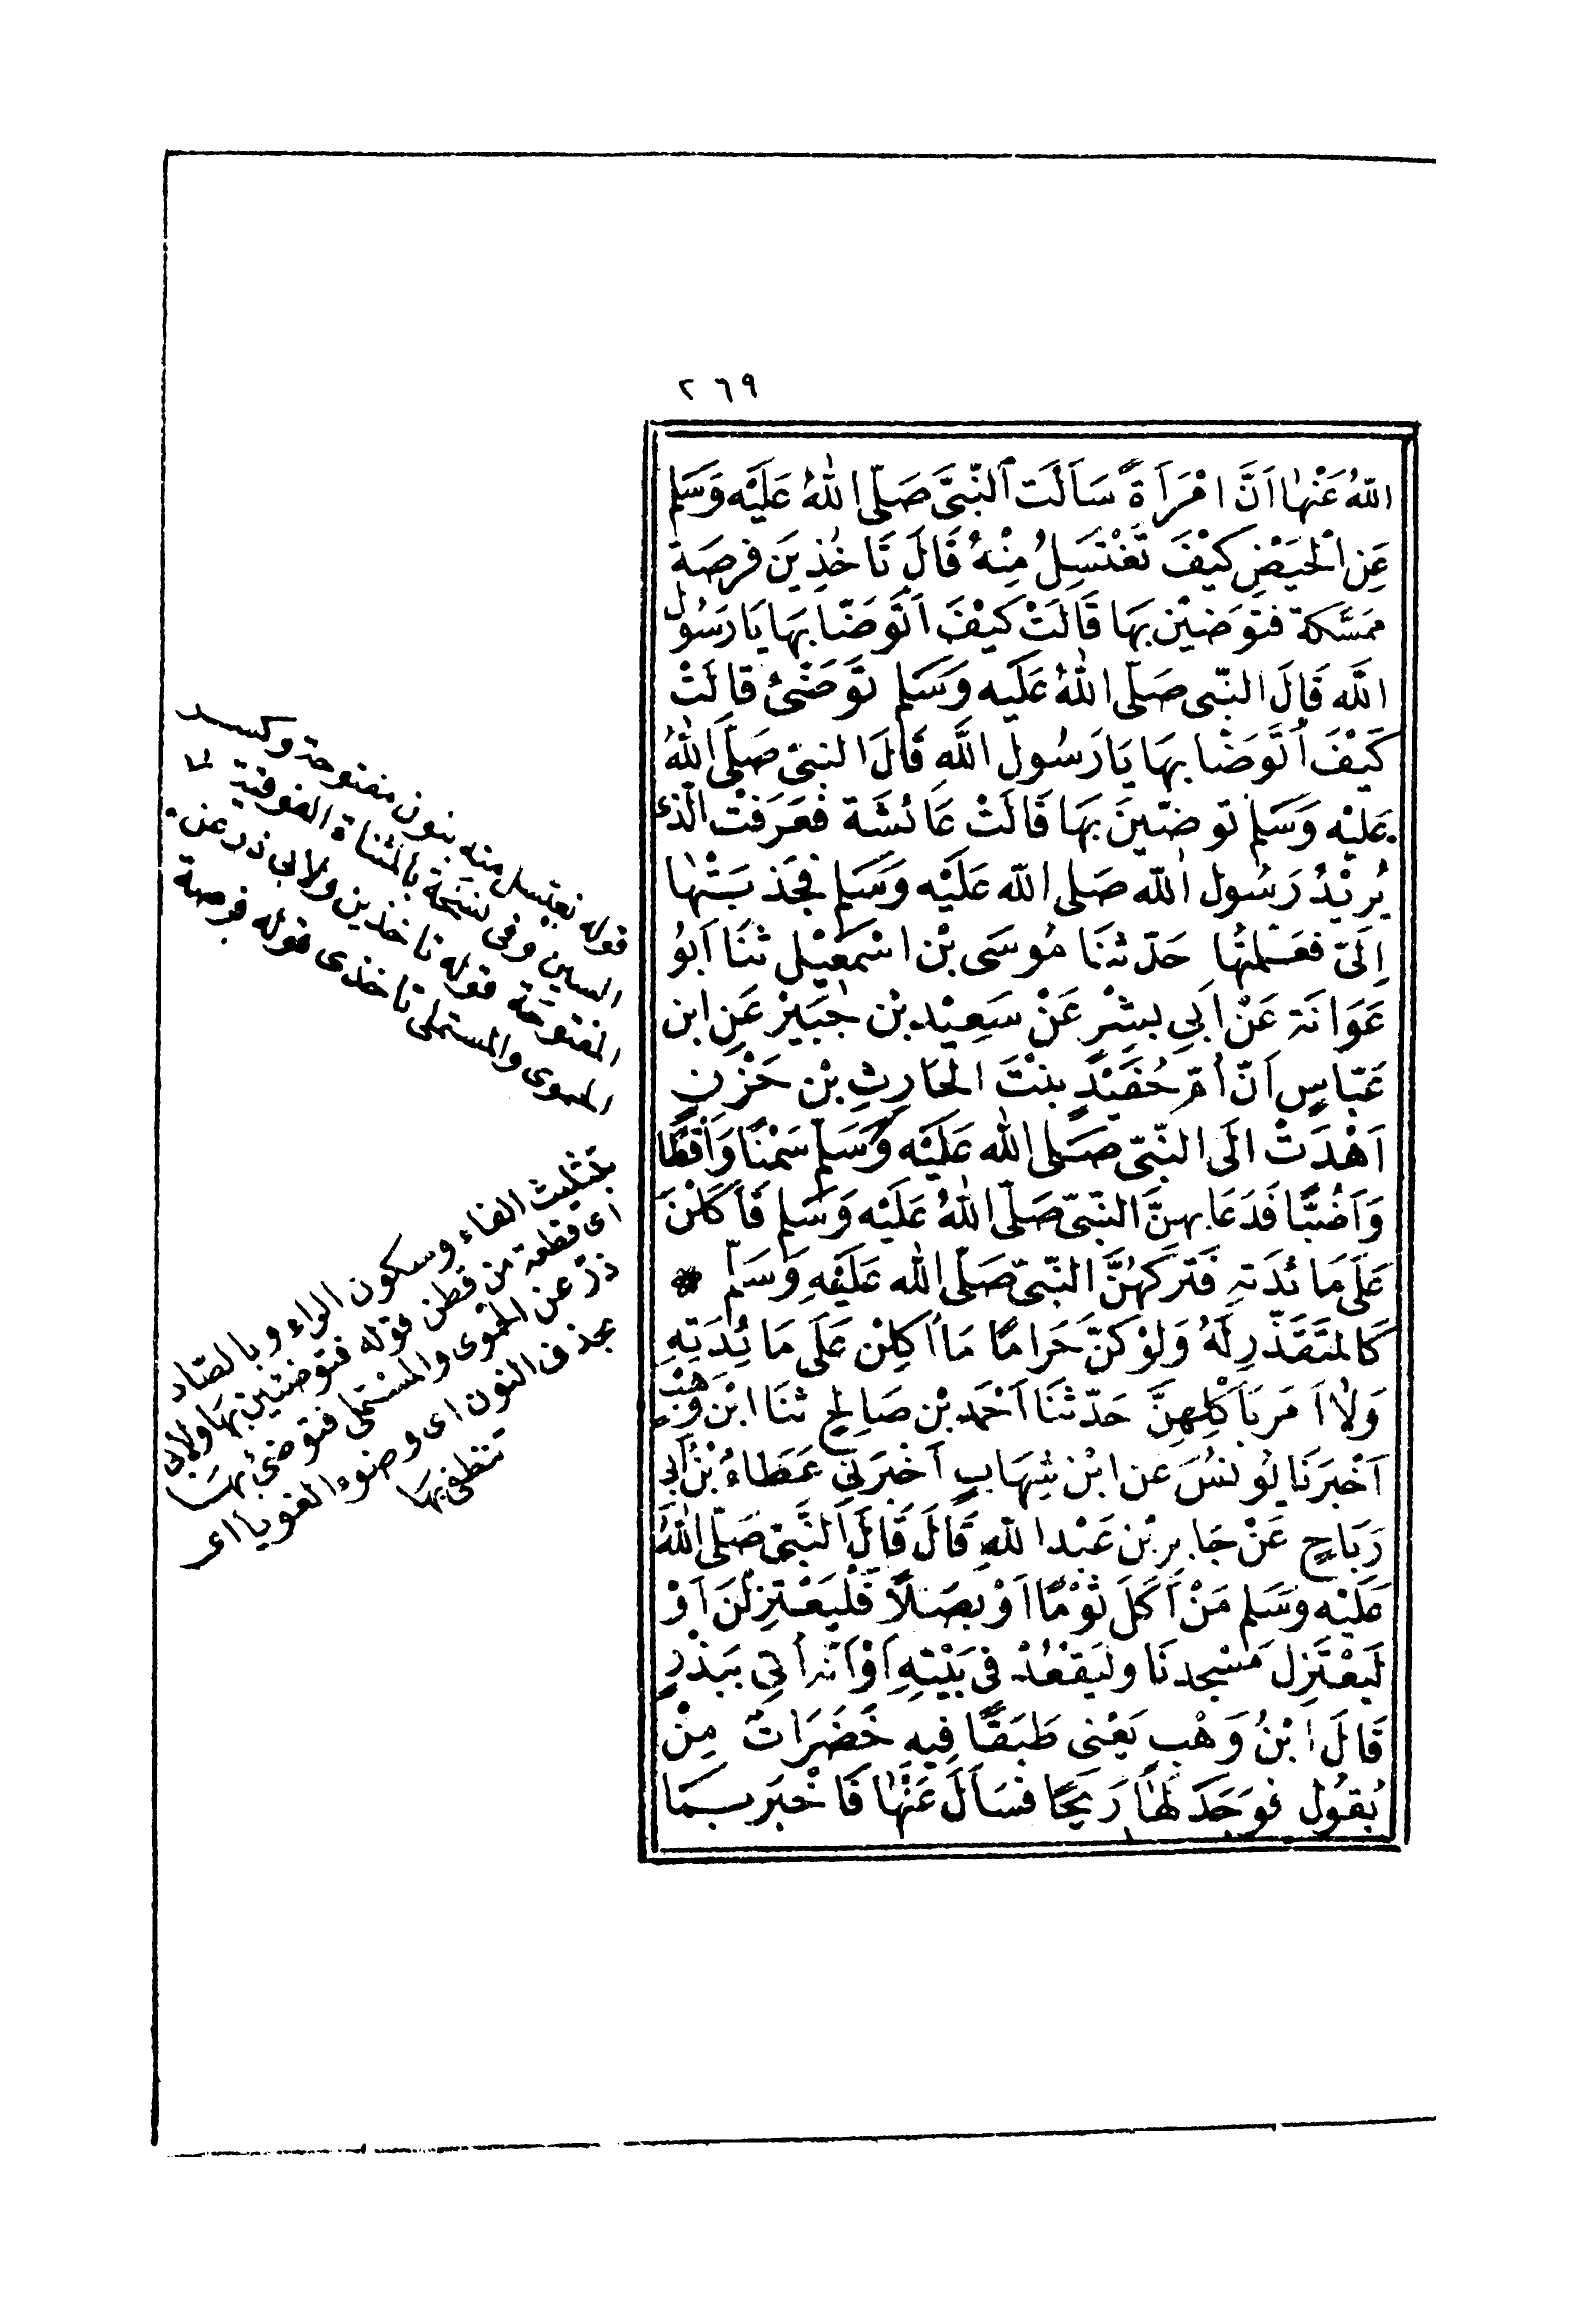 ٢٦٩
اللّٰهُ عَنْهَا اَنَّ امْرَأَةً سَاَلَتِ النَّبِىَّ صَلَّى اللّٰهُ عَلَيْهِ وَسَلَم
عَنِ الْحَيْضِ كَيْفَ تَغْتَسِلُ مِنْهُ قَالَ تَاخُذِينَ فِرصَةً
مُمَسَّكَة فتَوَضئِيْن بِهَا قَالَتْ كَيْفَ اَتَوَضّا بِهَا يَا رَسُول
اللَّه قَالَ النبّى صَلّى اللّٰهُ عَلَيه وَسَلَم تَوَضَّئِى قالَتْ
كَيْفَ اَتَوَضّا بِهَا يَا رَسُول اللَّهِ قَالَ النبىّ صَلَّى اللّٰهُ
عَلَيْه وَسَلَم توضّئِينَ بِهَا قَالَتْ عَائشَة فَعَرَفْت الّذى
يُرِيْدُ رَسُول اللّه صَلى اللّه عَلَيْه وَسَلم فجَذبَتْهَا
اِلَىّ فعَلمتُهَا حَدّثنَا مُوسَى بْن اسْمَعِيْل ثنَا اَبُو
عَوَانَة عَنْ اَبِي بِشْرٍ عَنْ سَعِيْد بْن جُبَيْرْ عَنِ ابن
عَبّاسٍ اَنّ اُمّ حُفَيْدٍ بِنْتَ الحَارِثِ بْن حَزْنٍ
اَهْدَتْ الَى النَّبّى صَلى اللّه عَلَيْه وَسَلّم سَمْنًا وَاَقطًا
وَاَضُبًّا فَدَعَا بهنَّ النَّبّى صَلّى اللّٰهُ عَلَيْه وَسَلم فَاَكلْنَ
عَلَى مَائدَتهِ فَتَركَهُنَّ النَّبّى صَلّى اللّه عَلَيْهِ وَسَلّم *
كَالمتَقَذّرِ لَهُ وَلوْ كنّ حَرامًا مَا اُكِلْن عَلَى مَائِدَتِهِ
وَلَا اَمَر بَاَكْلِهِنَّ حَدّثنَا اَحْمَد بْن صَالِحٍ ثنَا ابْن وَهْبٍ
اَخْبَرَنَا يُونسُ عن ابْن شِهَابٍ اَخْبَرَنِي عَطَاءُ بْنُ اَبِي
رَبَاحٍ عَنْ جَابِر بْن عَبْد اللّهِ قَالَ قَالَ النَّبّى صَلّى اللّٰهُ
عَلَيْه وَسَلم مَنْ اَكَلَ ثُوْمًا اَوْ بَصَلًا فَلْيَعْتزِلْنَا اَوْ
لَيَعْتَزِل مَسْجِدنَا وليَقعُدْ فِى بَيْتِهِ وَاَنّهُ اُتِي بِبَدْرٍ
قَالَ ابْنُ وَهْبٍ يَعْنى طَبَقًا فِيهِ خَضرَاتٌ مِنْ
بُقُول فوَجَدَ لَهَا رِيحًا فسَاَلَ عَنْهَا فَاُخْبرَ بمَا
قوله نغتسل منه بنون مفتوحة وكسر
السين وفى نسخة بالمثناة الفوقية
المفتوحة قوله تاخذين ولابي ذر عن
الحموى والمستملى تاخذى قوله فرصة
بتثليث الفاء وسكون الراء وبالصّاد
اى قطعة من قطن قوله فتوضئين بها ولابى
ذرّ عن الحموى والمستملى فتوضئى بها
بحذف النون اى وضوءا لغويا اى
تنظفى بها